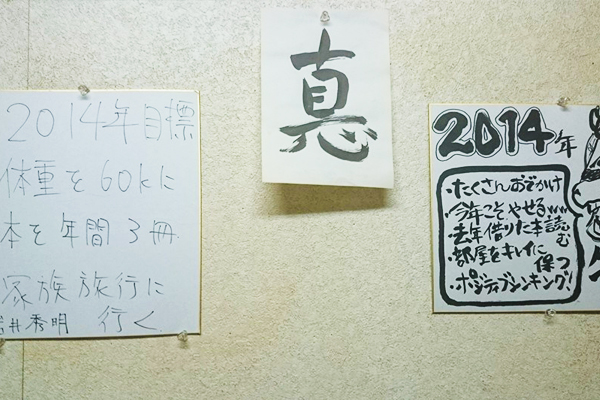 2014年目標
体重を60kに
本を年間3冊
家族旅行に
行く
井秀明
悳
2014年
・たくさんおでかけ
・今年こそやせるwww
・去年借りた本読む
・部屋をキレイに保つ
・ポジティブシンキング!